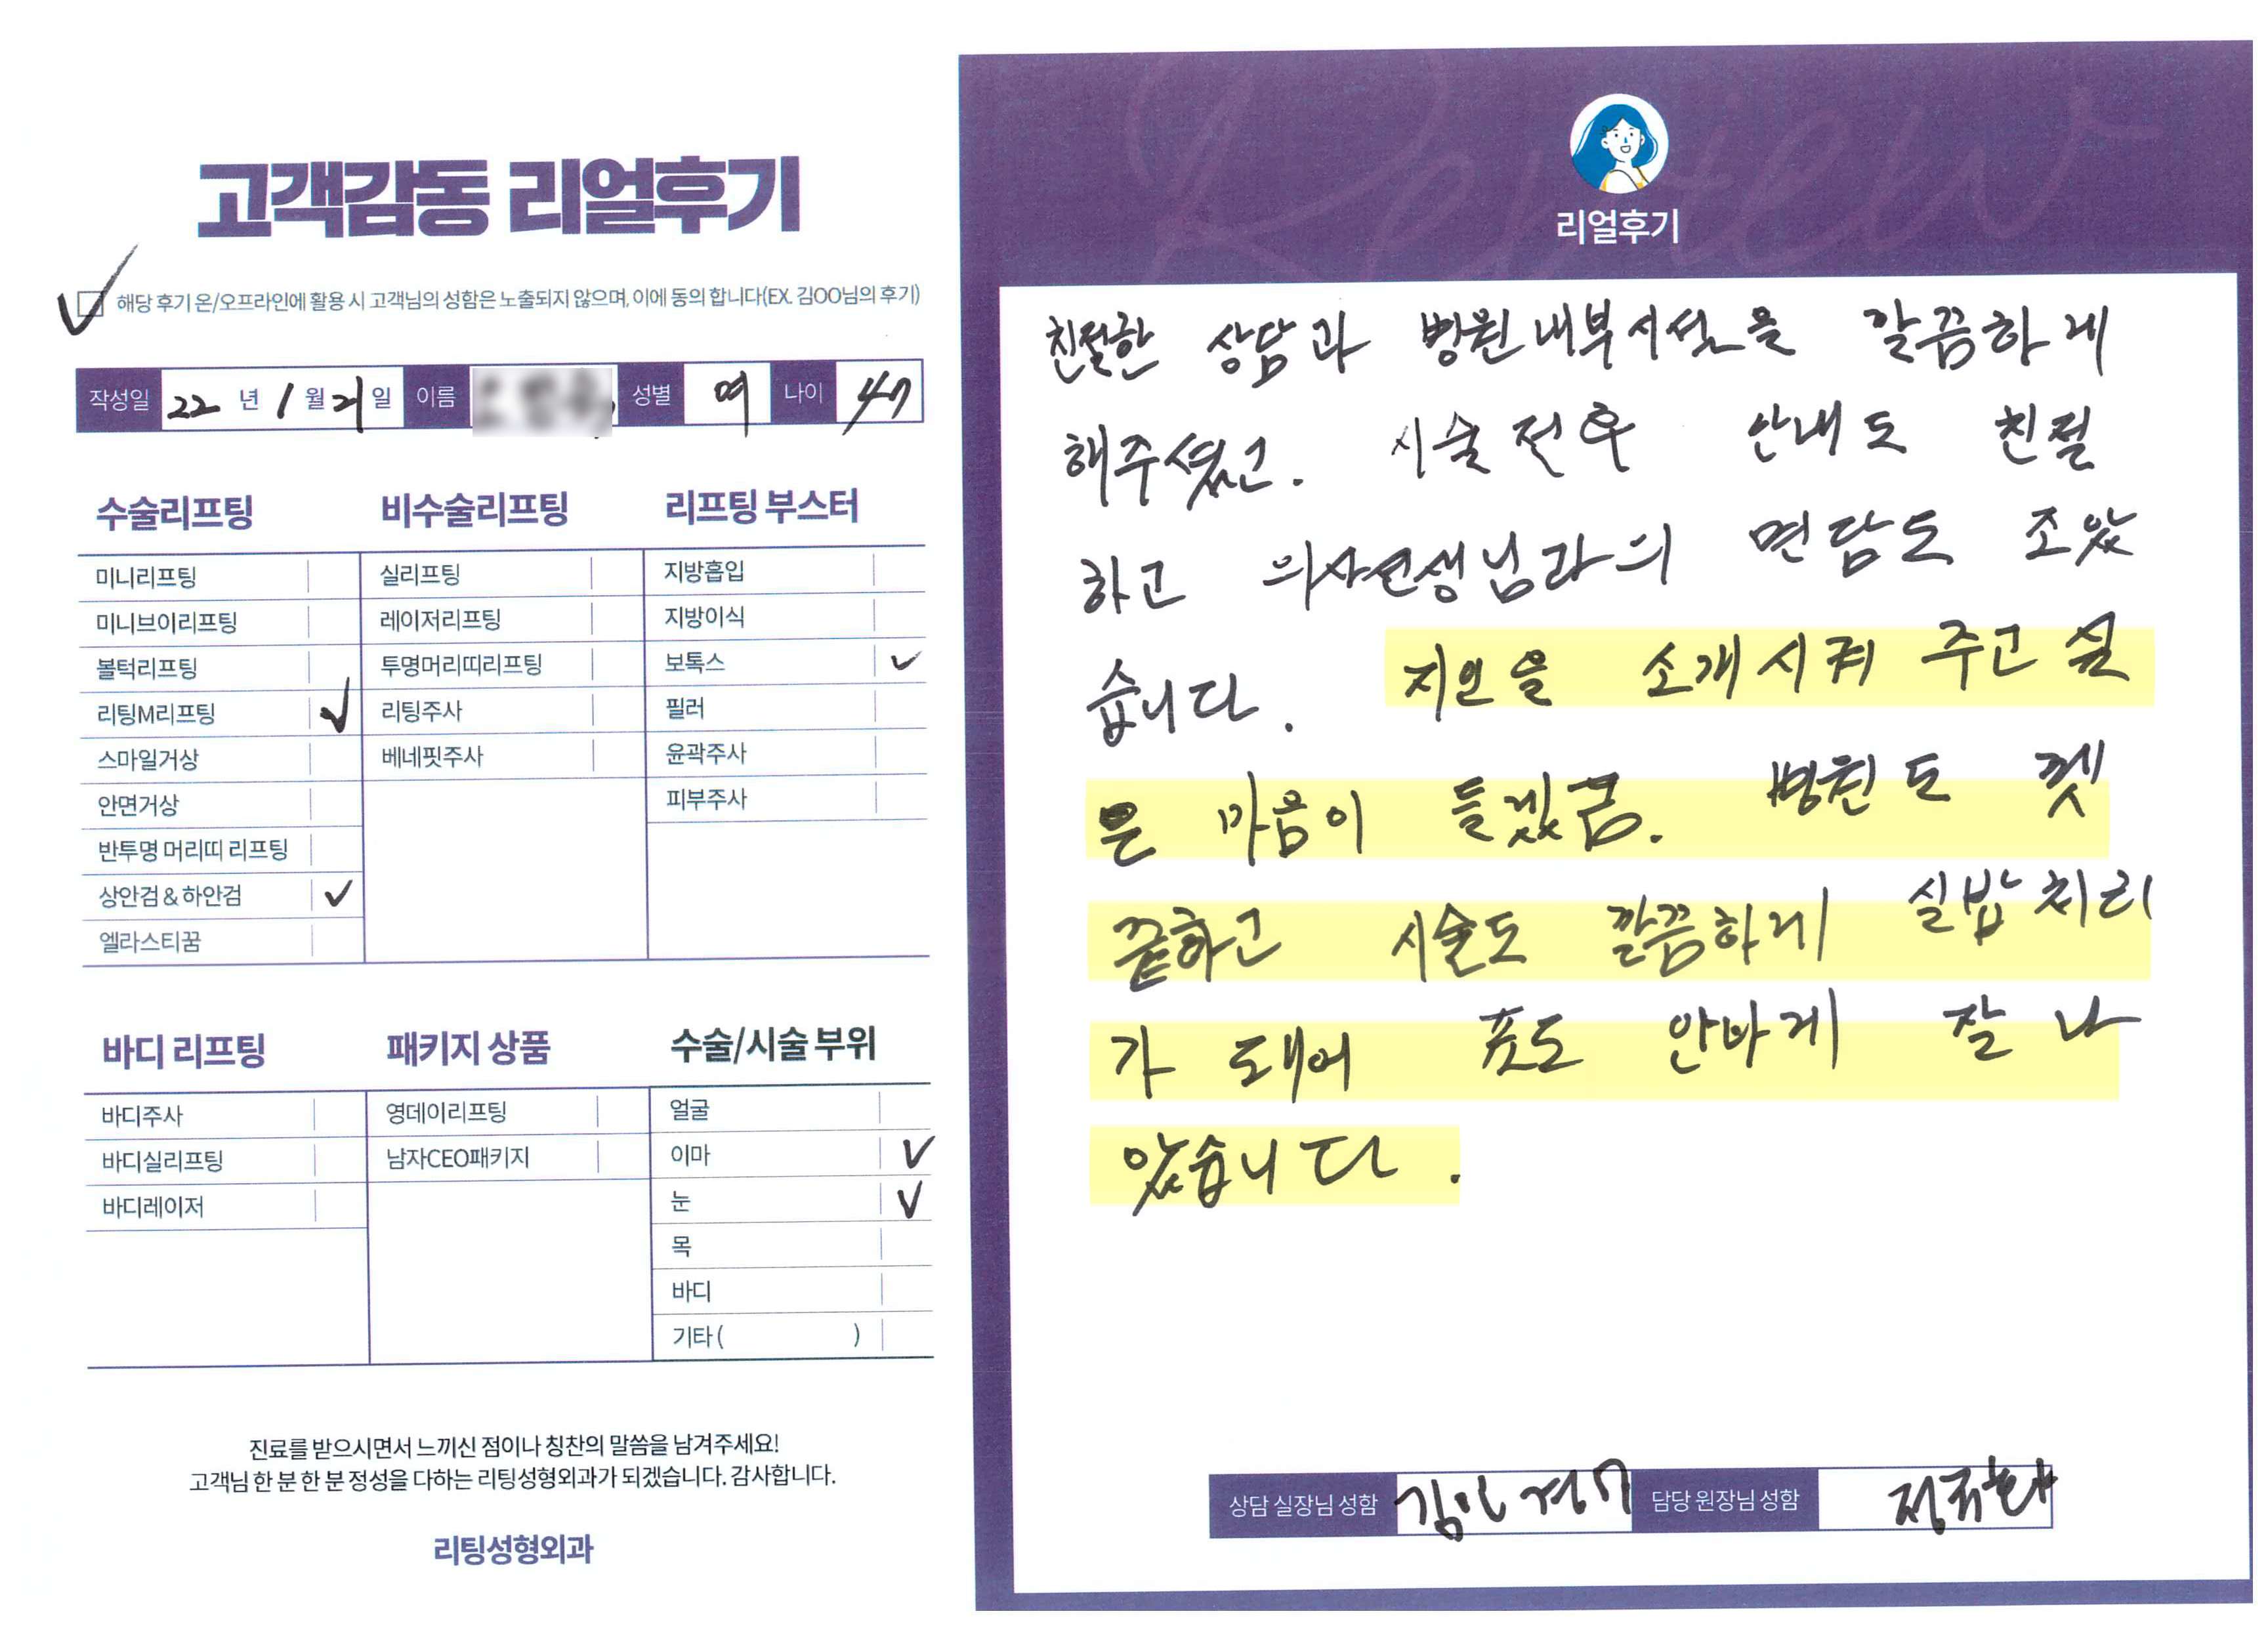 고객감동 리얼후기
해당 후기 온/오프라인에 활용 시 고객님의 성함은 노출되지 않으며, 이에 동의 합니다(EX. 김OO님의 후기)
작성일 22 년 1 월 21 일 이름 성별 여 나이 47
수술리프팅
미니리프팅
미니브이리프팅
볼턱리프팅
리팅M리프팅 ✓
스마일거상
안면거상
반투명 머리띠 리프팅
상안검 & 하안검 ✓
엘라스티꿈
비수술리프팅
실리프팅
레이저리프팅
투명머리띠리프팅
리팅주사
베네핏주사
리프팅 부스터
지방흡입
지방이식
보톡스 ✓
필러
윤곽주사
피부주사
바디 리프팅
바디주사
바디실리프팅
바디레이저
패키지 상품
영데이리프팅
남자CEO패키지
수술/시술 부위
얼굴
이마 ✓
눈 ✓
목
바디
기타 ( )
진료를 받으시면서 느끼신 점이나 칭찬의 말씀을 남겨주세요!
고객님 한 분 한 분 정성을 다하는 리팅성형외과가 되겠습니다. 감사합니다.
리팅성형외과
Review
리얼후기
친절한 상담과 병원내부시설을 깔끔하게
해주셨고. 시술전후 안내도 친절
하고 의사선생님과의 면담도 조았
습니다. 지인을 소개시켜 주고 싶
은 마음이 들겠끔. 병원도 깻
끝하고 시술도 깔끔하게 실밥처리
가 도ㅐ어 푯도 안나게 잘 나
았습니다.
상담 실장님 성함 담당 원장님 성함